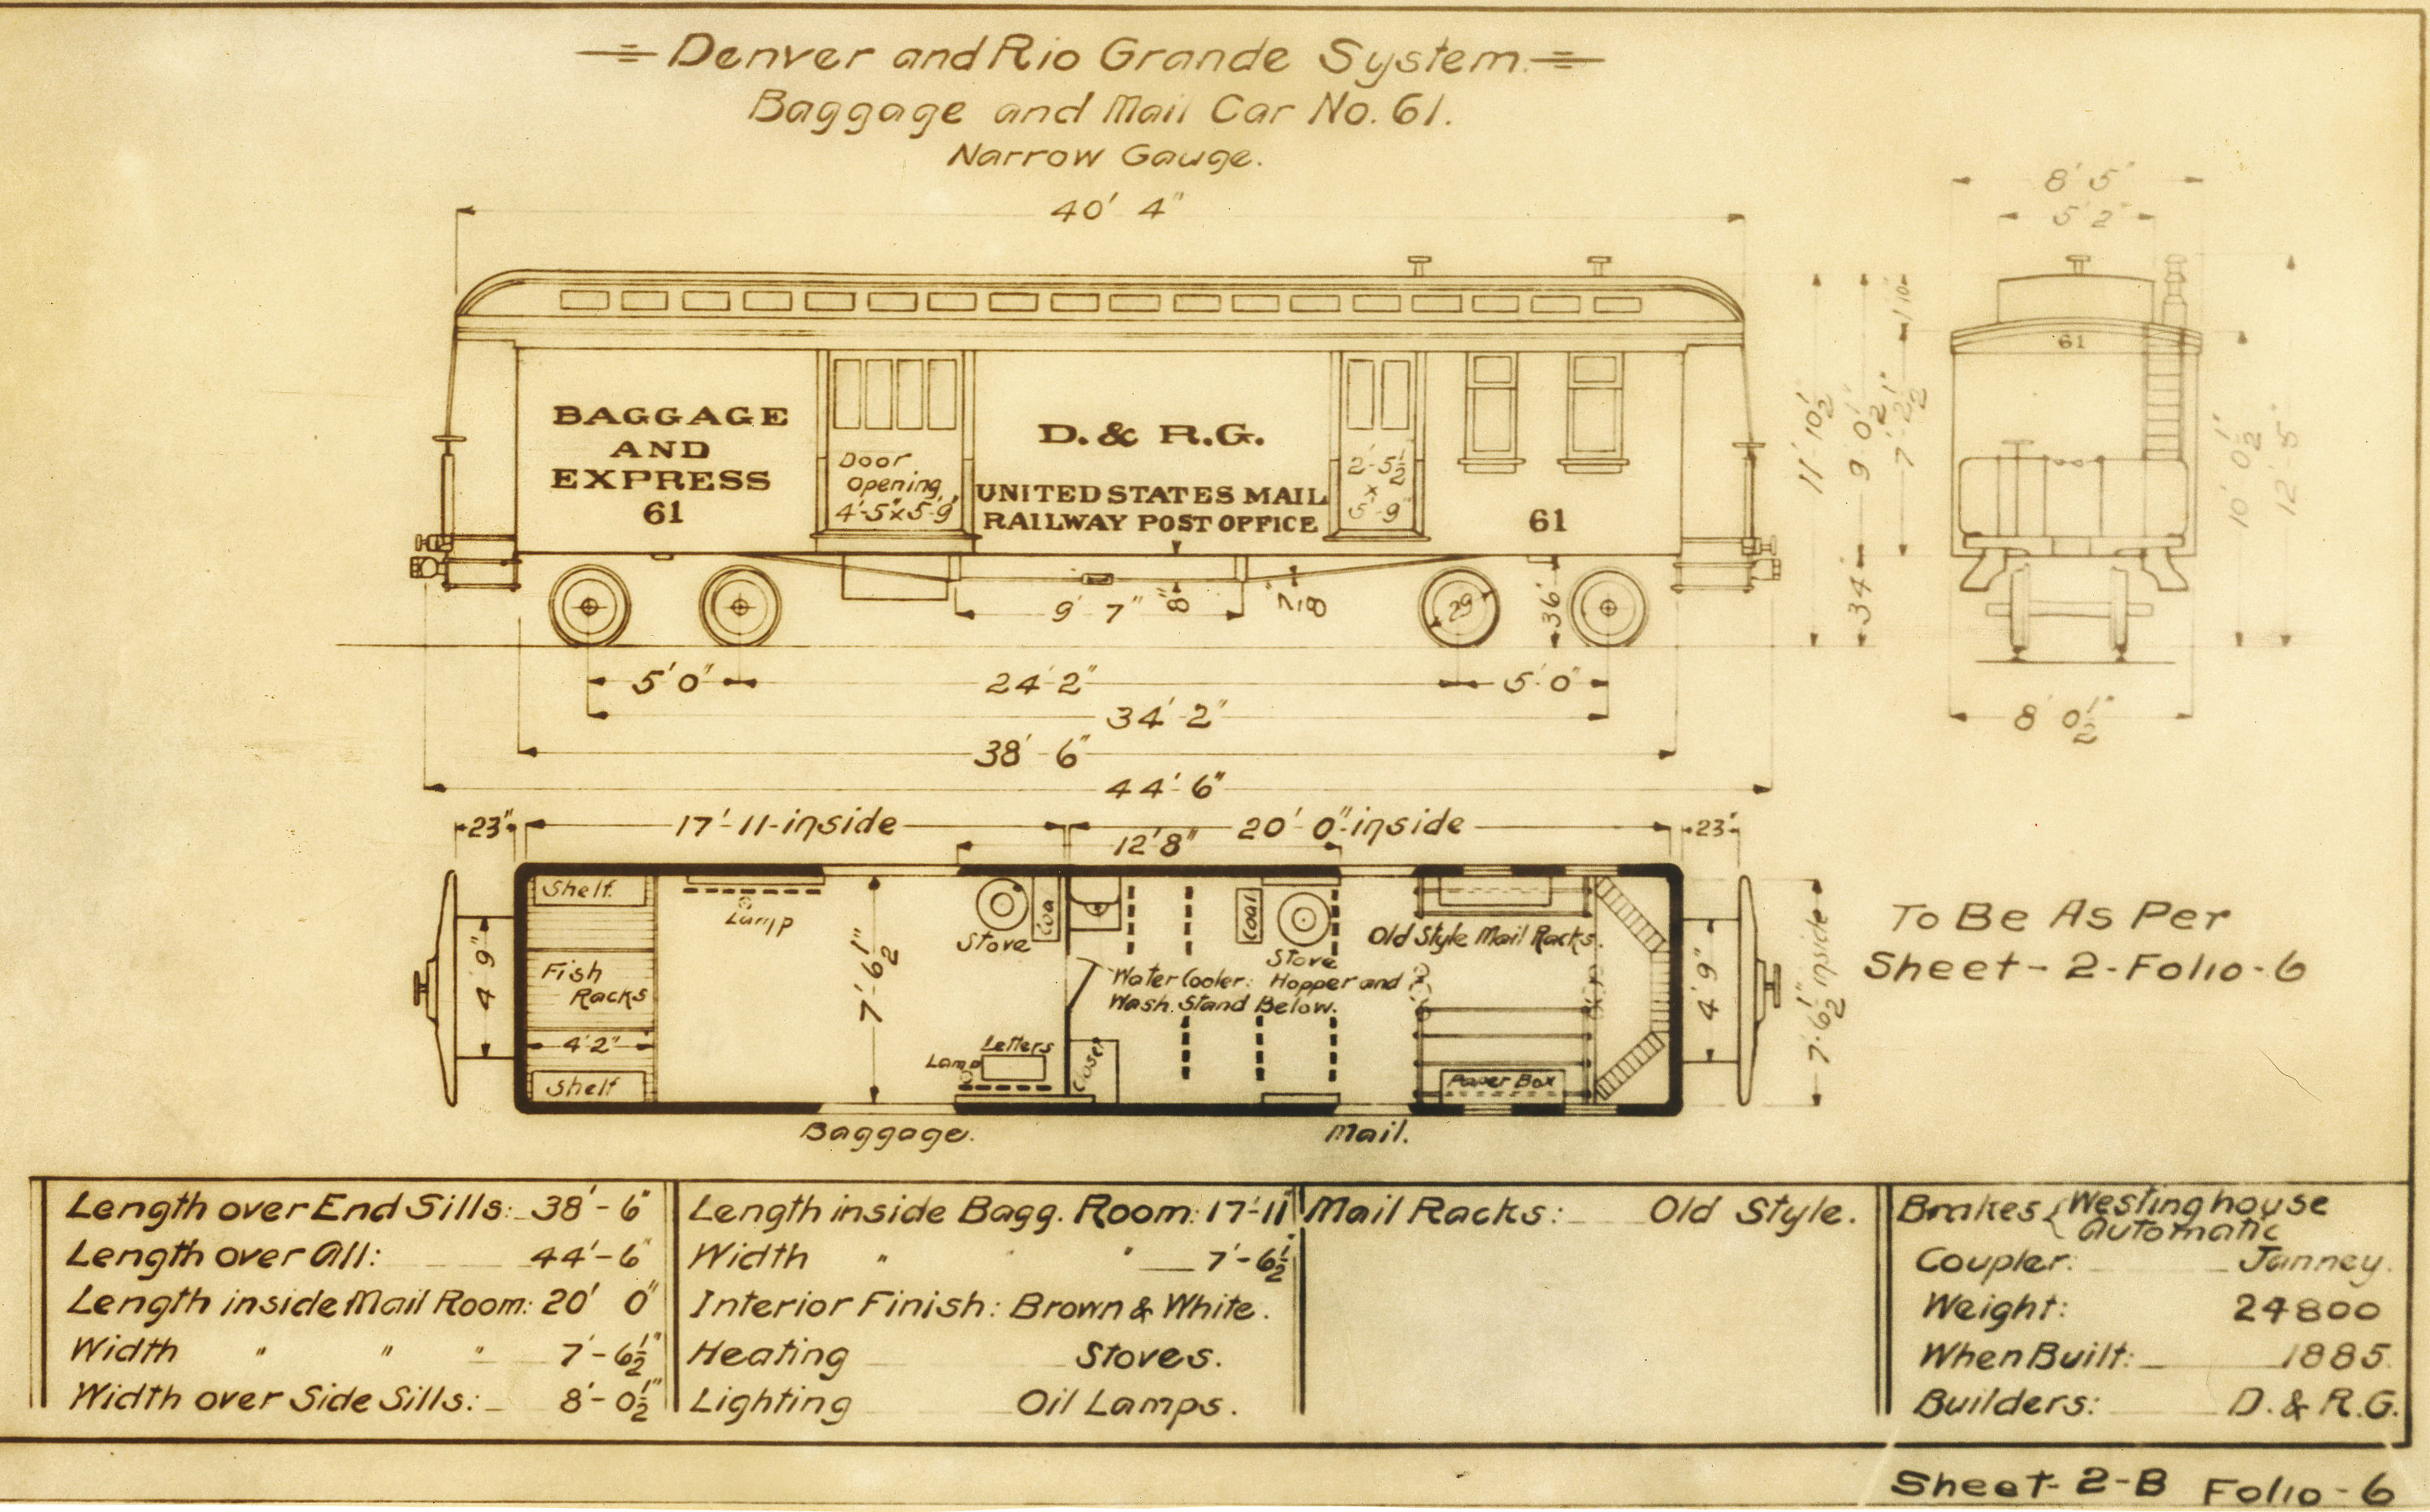 Denver and Rio Grande System.
Baggage and Mail Car No. 61.
Narrow Gauge.
40' 4"
8' 5"
5' 2"
61
BAGGAGE
AND
EXPRESS
61
Door
Opening
4'-5"x5'-9"
D. & R.G.
UNITED STATES MAIL
RAILWAY POST OFFICE
2'-5½"
x
5'-9"
61
1'10"
7'-2½"
9' 0½"
11' 10½"
34"
10' 0½"
12'-5"
9' 7"
8"
29"
36"
5' 0"
24'-2"
5'-0"
34'-2"
38'-6"
44'-6"
8' 0½"
23"
17'-11-inside
20'-0"-inside
23"
12'8"
Shelf.
Lamp
Stove
Coal
Coal
Stove
Old Style Mail Racks.
4' 9"
Fish
Racks
7'-6½"
Water Cooler. Hopper and
Wash Stand Below.
4' 9"
7'-6½" inside
4'2"
Shelf
Letters
Lamp
Closet
Paper Box
Baggage.
Mail.
To Be As Per
Sheet-2-Folio-6
Length over End Sills: 38'-6"
Length over All: 44'-6"
Length inside Mail Room: 20' 0"
Width " " " 7'-6½"
Width over Side Sills: 8'-0½"
Length inside Bagg. Room: 17'-11"
Width " " " 7'-6½"
Interior Finish: Brown & White.
Heating Stoves.
Lighting Oil Lamps.
Mail Racks: Old Style.
Brakes { Westinghouse
Automatic
Coupler: Janney.
Weight: 24800
When Built: 1885.
Builders: D. & R.G.
Sheet-2-B Folio-6